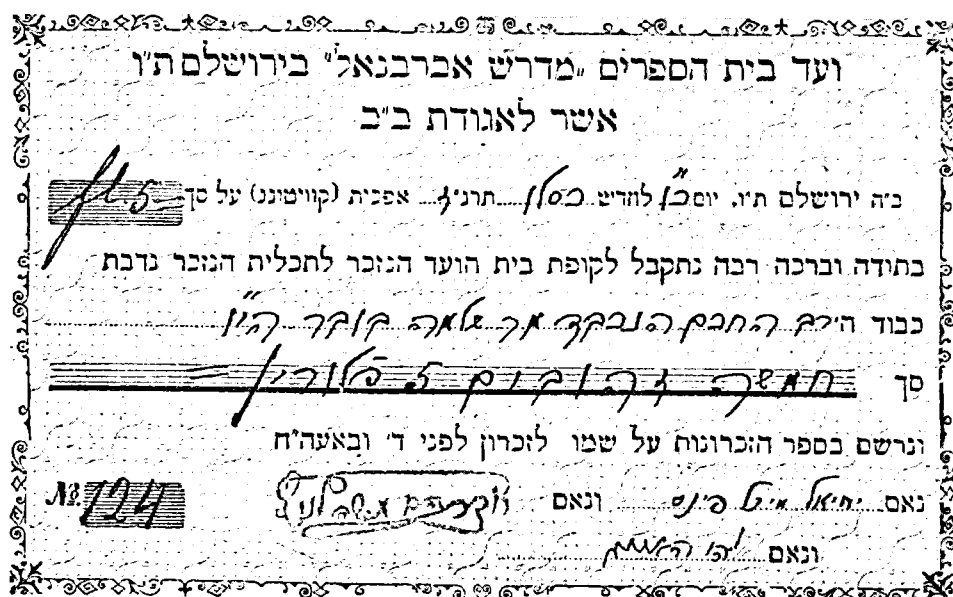 ועד בית הספרים „מדרש אברבנאל” בירושלם ת״ו
אשר לאגודת ב״ב
ב״ה ירושלם ת״ו. יום לחדש כסלו תרנ״ אפכית (קוויטונג) על סך 5
בתודה וברכה רבה נתקבל לקופת בית הועד הנזכר לתכלית הנזכר נדבת
כבוד הרב החכם הנכבד מר שלמה בובר הי״ו
סך חמשה זהובים פלורין
ונרשם בספר הזכרונות על שמו לזכרון לפני ד׳ ובאעה״ח
נאם יחיאל מיכל פינס ונאם
No. 124
ונאם